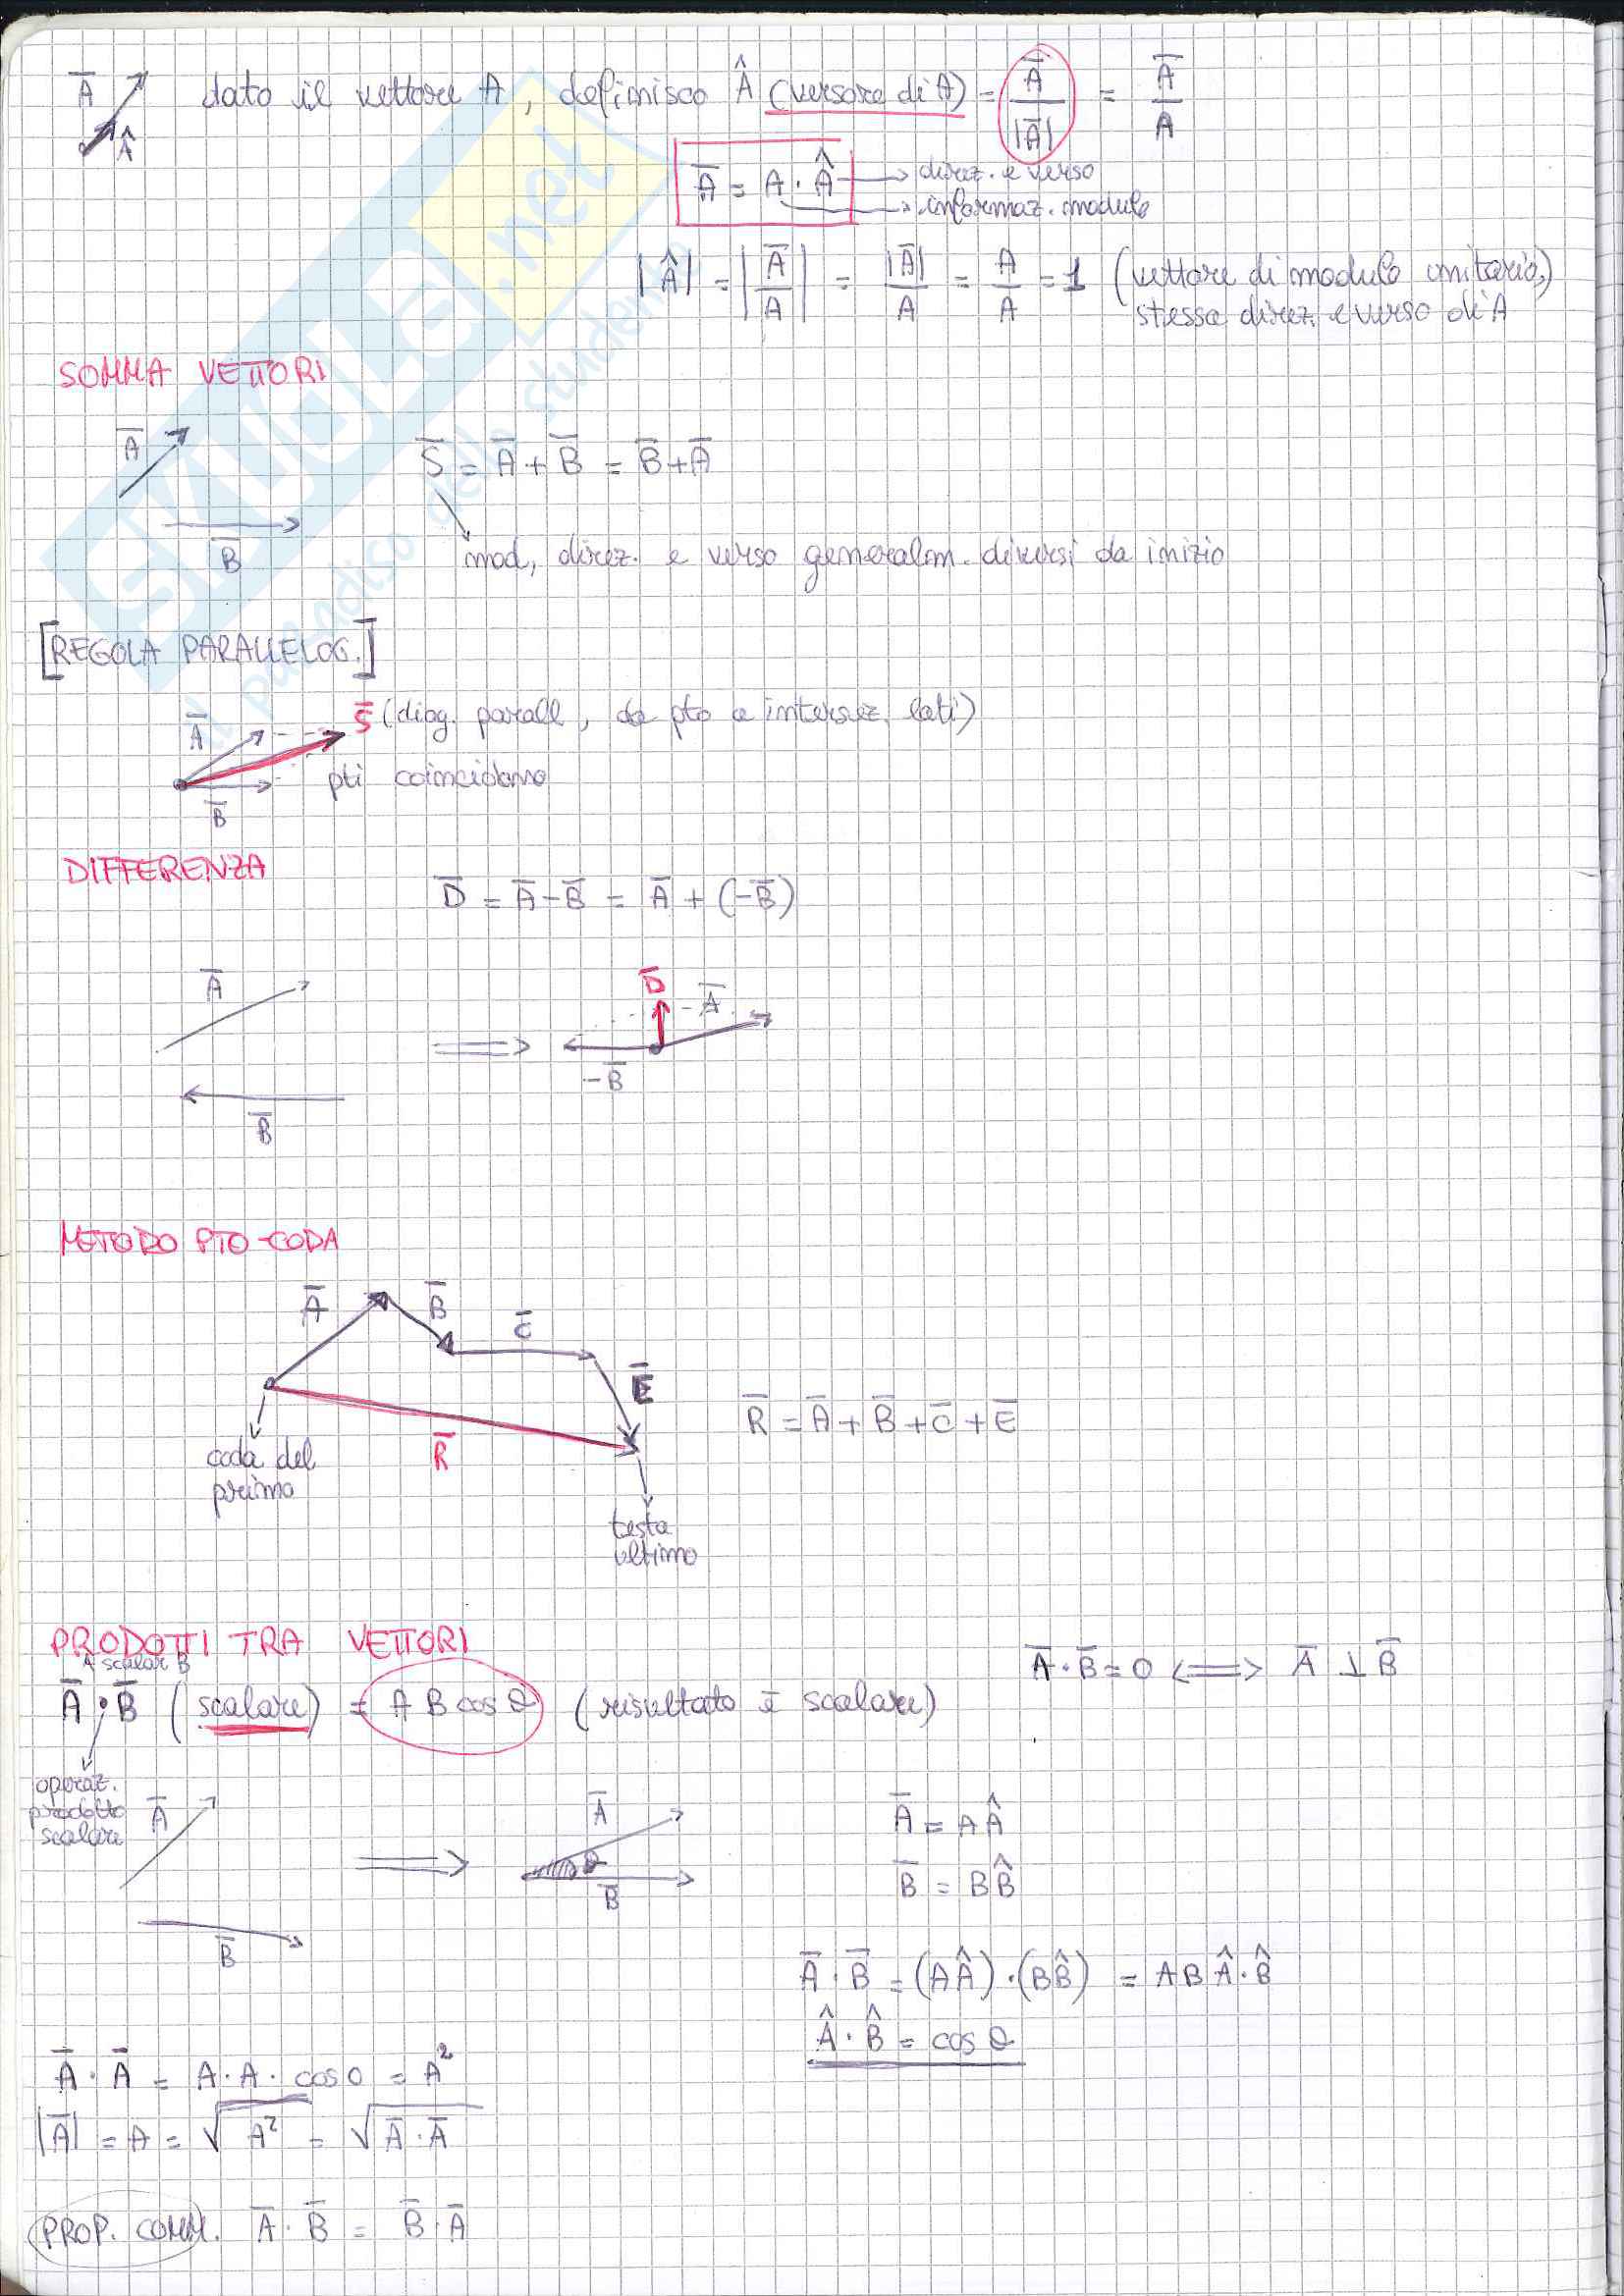 A̅ dato il vettore A, definisco Â (versore di A) = A̅/|A̅| = A̅/A
Â
A̅ = A · Â → direz. e verso
→ informaz. modulo
|Â| = |A̅/A| = |A̅|/A = A/A = 1 (vettore di modulo unitario,
stessa direz. e verso di A
SOMMA VETTORI
A̅
S̅ = A̅ + B̅ = B̅ + A̅
B̅
mod, direz. e verso generalm. diversi da inizio
[REGOLA PARALLELOG.]
A̅ S̅ (diag. parall, da pto a intersez. lati)
pti coincidono
B̅
DIFFERENZA
D̅ = A̅ - B̅ = A̅ + (-B̅)
A̅ D̅ A̅
⟹ -B̅
B̅
METODO PTO-CODA
A̅ B̅ C̅
E̅
R̅ = A̅ + B̅ + C̅ + E̅
R̅
coda del
primo
testa
ultimo
PRODOTTI TRA VETTORI
A̅ · B̅ = 0 ⟺ A̅ ⊥ B̅
A scalar B
A̅ · B̅ (scalare) = A B cos θ (risultato è scalare)
operaz.
prodotto
scalare
A̅ A̅
⟹ θ
B̅ B̅
A̅ = AÂ
B̅ = BB̂
A̅ · B̅ = (AÂ) · (BB̂) = AB Â · B̂
Â · B̂ = cos θ
A̅ · A̅ = A · A · cos 0 = A²
|A̅| = A = √A² = √A̅ · A̅
PROP. COMM. A̅ · B̅ = B̅ · A̅
SKUOLA.net
il paradiso dello studente